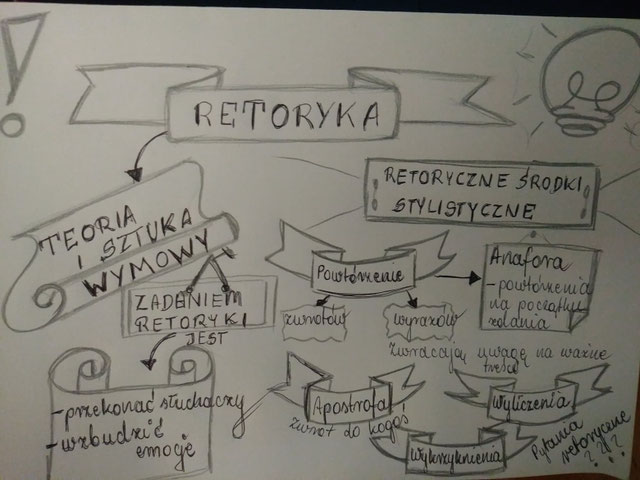 !
RETORYKA
TEORIA
I SZTUKA
WYMOWY
ZADANIEM
RETORYKI
JEST
-przekonać słuchaczy
-wzbudzić
emocje
RETORYCZNE ŚRODKI
STYLISTYCZNE
Powtórzenie
zwrotów
wyrazów
zwracają uwagę na ważne
treści
Anafora
-powtórzenia
na początku
zdania
Apostrofa
zwrot do kogoś
Wyliczenia
Wykrzyknienia
Pytania
retoryczne
? ? ?